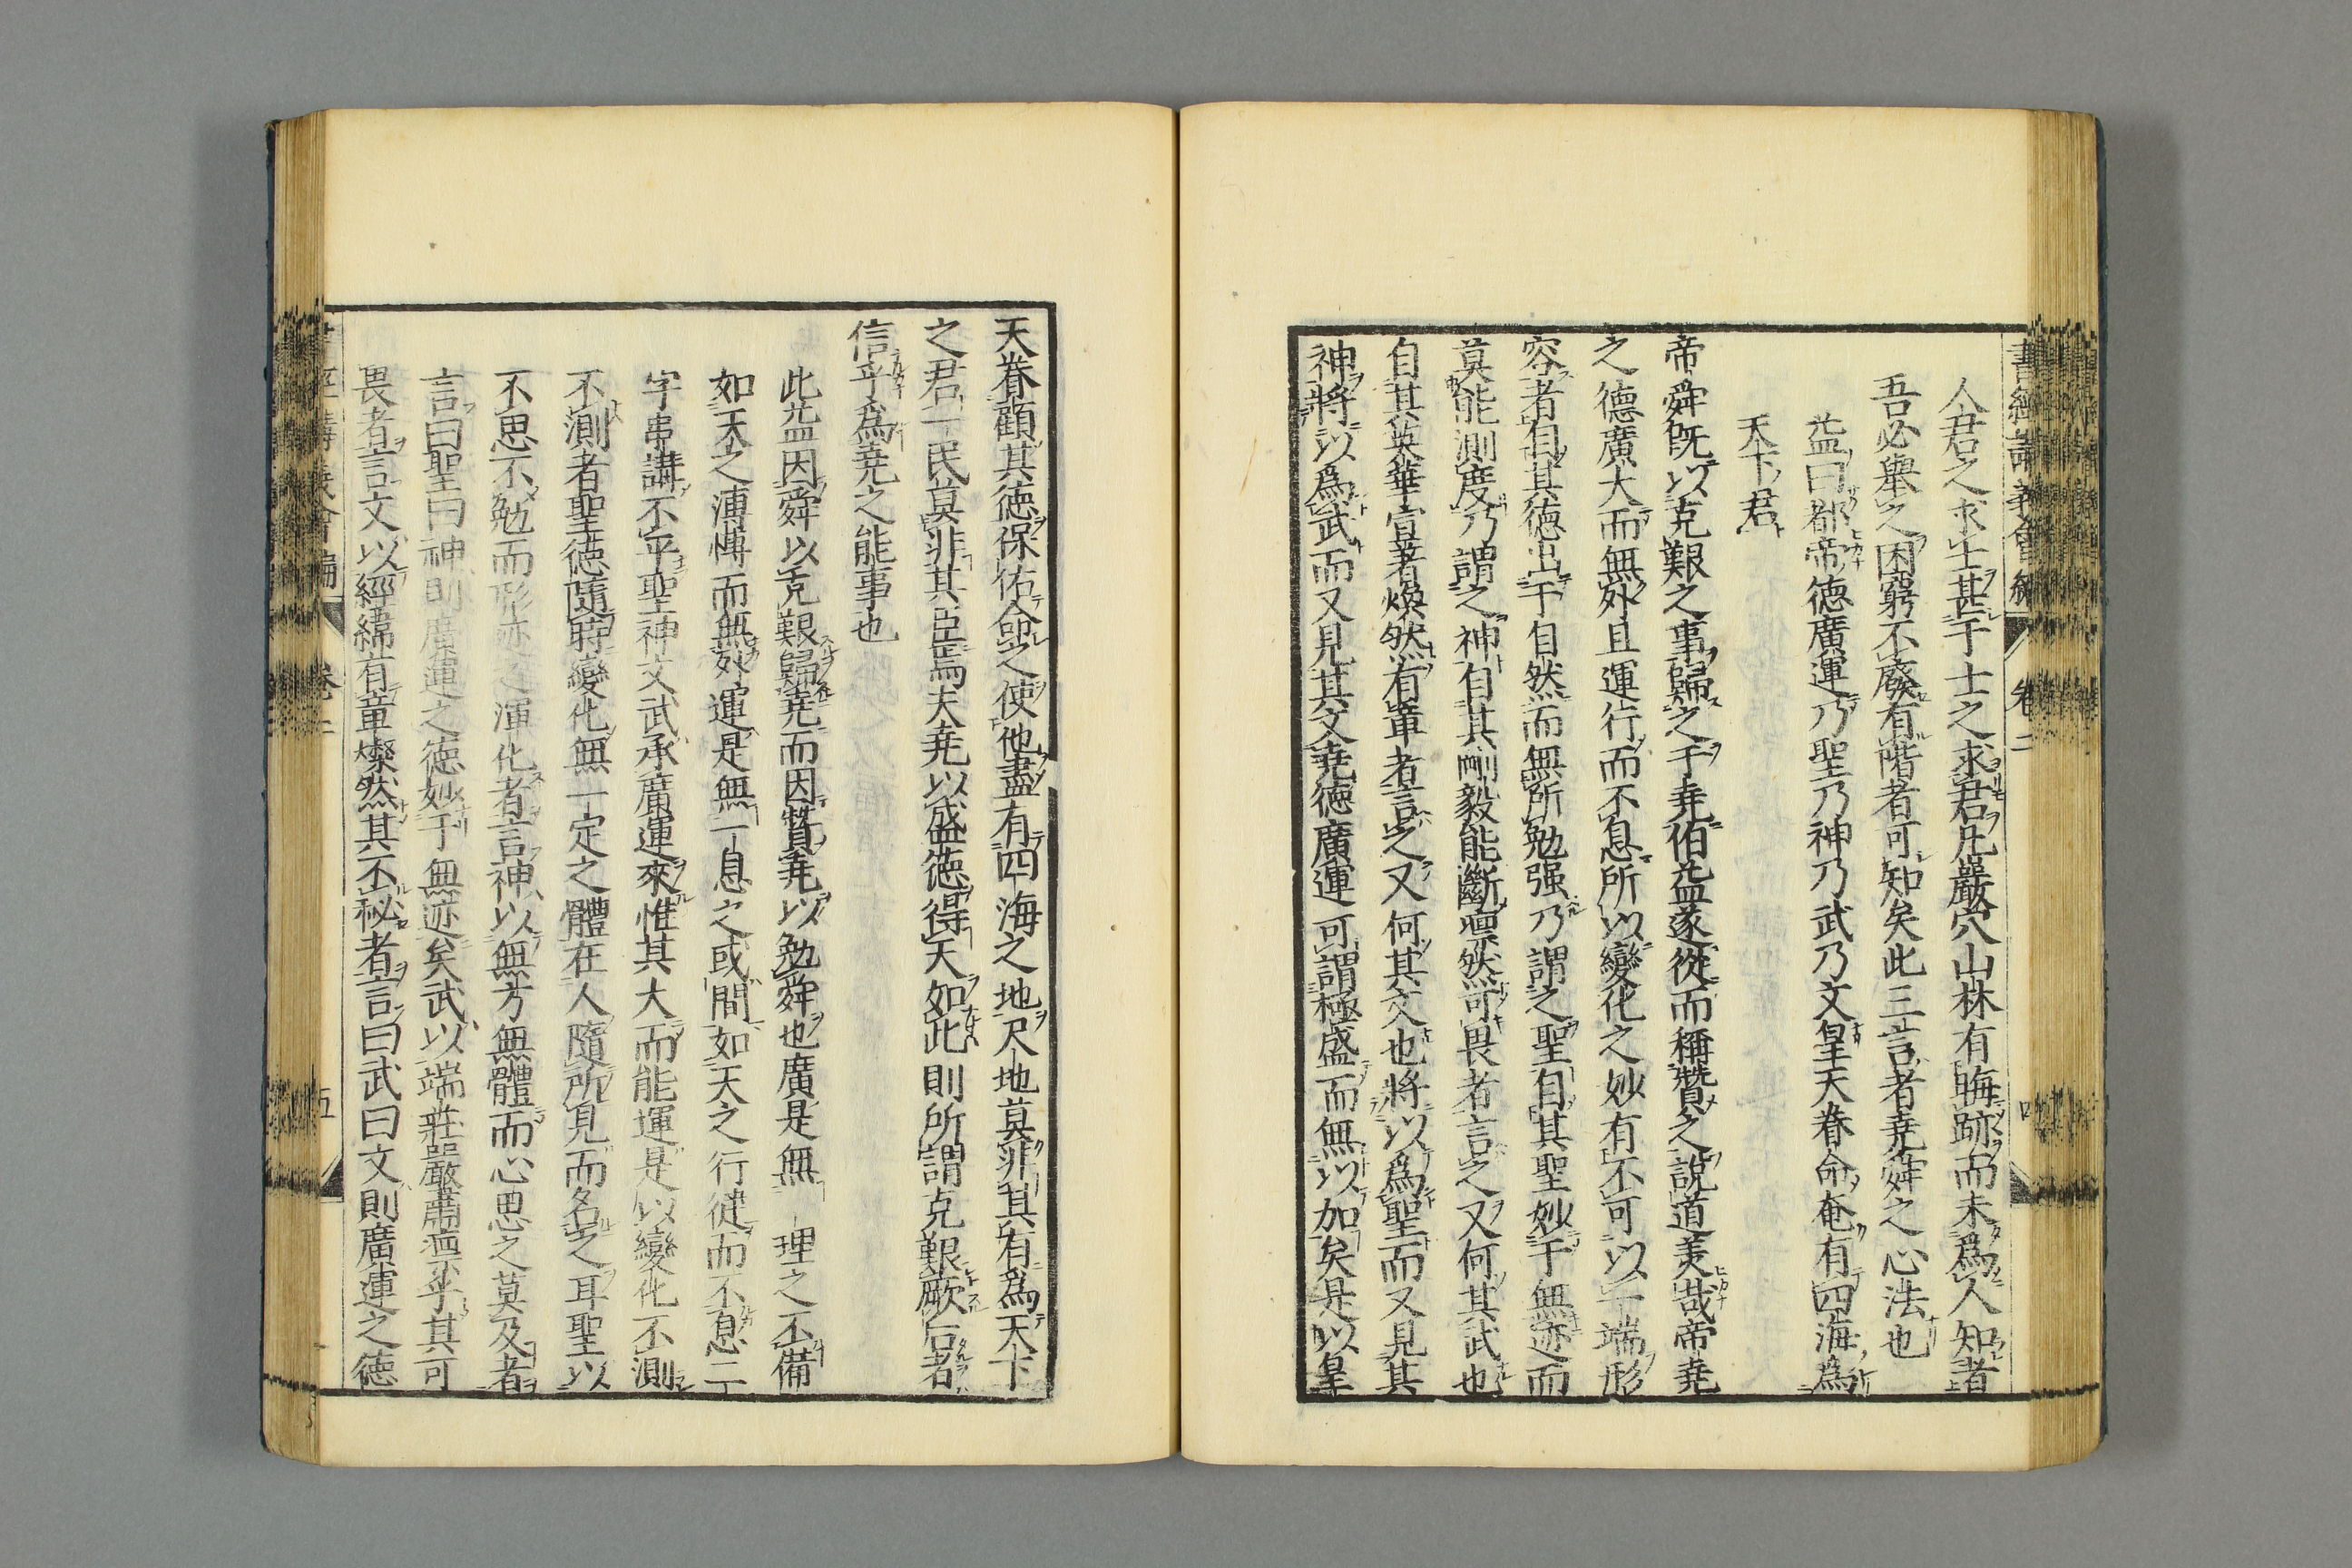 書經講義會編 卷二 四
人君之求士甚于士之求君凡巖穴山林有晦跡而未爲人知者
吾必舉之困窮不廢有階者可知矣此三言者堯舜之心法也
益曰都帝德廣運乃聖乃神乃武乃文皇天眷命奄有四海爲
天下君
帝舜旣以克艱之事歸之于堯伯益遂從而稱贊之說道美哉帝堯
之德廣大而無外且運行而不息所以變化之妙有不可以一端形
容者自其德出于自然而無所勉强乃謂之聖自其聖妙于無迹而
莫能測度乃謂之神自其剛毅能斷凛然可畏者言之又何其武也
自其英華宣著煥然有章者言之又何其文也將以爲聖而又見其
神將以爲武而又見其文堯德廣運可謂極盛而無以加矣是以皇
天眷顧其德保佑命之使他盡有四海之地尺地莫非其有爲天下
之君一民莫非其臣焉夫堯以盛德得天如此則所謂克艱厥后者
信乎爲堯之能事也
此益因舜以克艱歸堯而因贊堯以勉舜也廣是無一理之不備
如天之溥博而無外運是無一息之或間如天之行健而不息二
字串講不平聖神文武承廣運來惟其大而能運是以變化不測
不測者聖德隨時變化無一定之體在人隨所見而名之耳聖以
不思不勉而形迹之渾化者言神以無方無體而心思之莫及者
言曰聖曰神則廣運之德妙于無迹矣武以端莊嚴肅凜乎其可
畏者言文以經緯有章燦然其不秘者言曰武曰文則廣運之德
書經講義會編 卷二 五